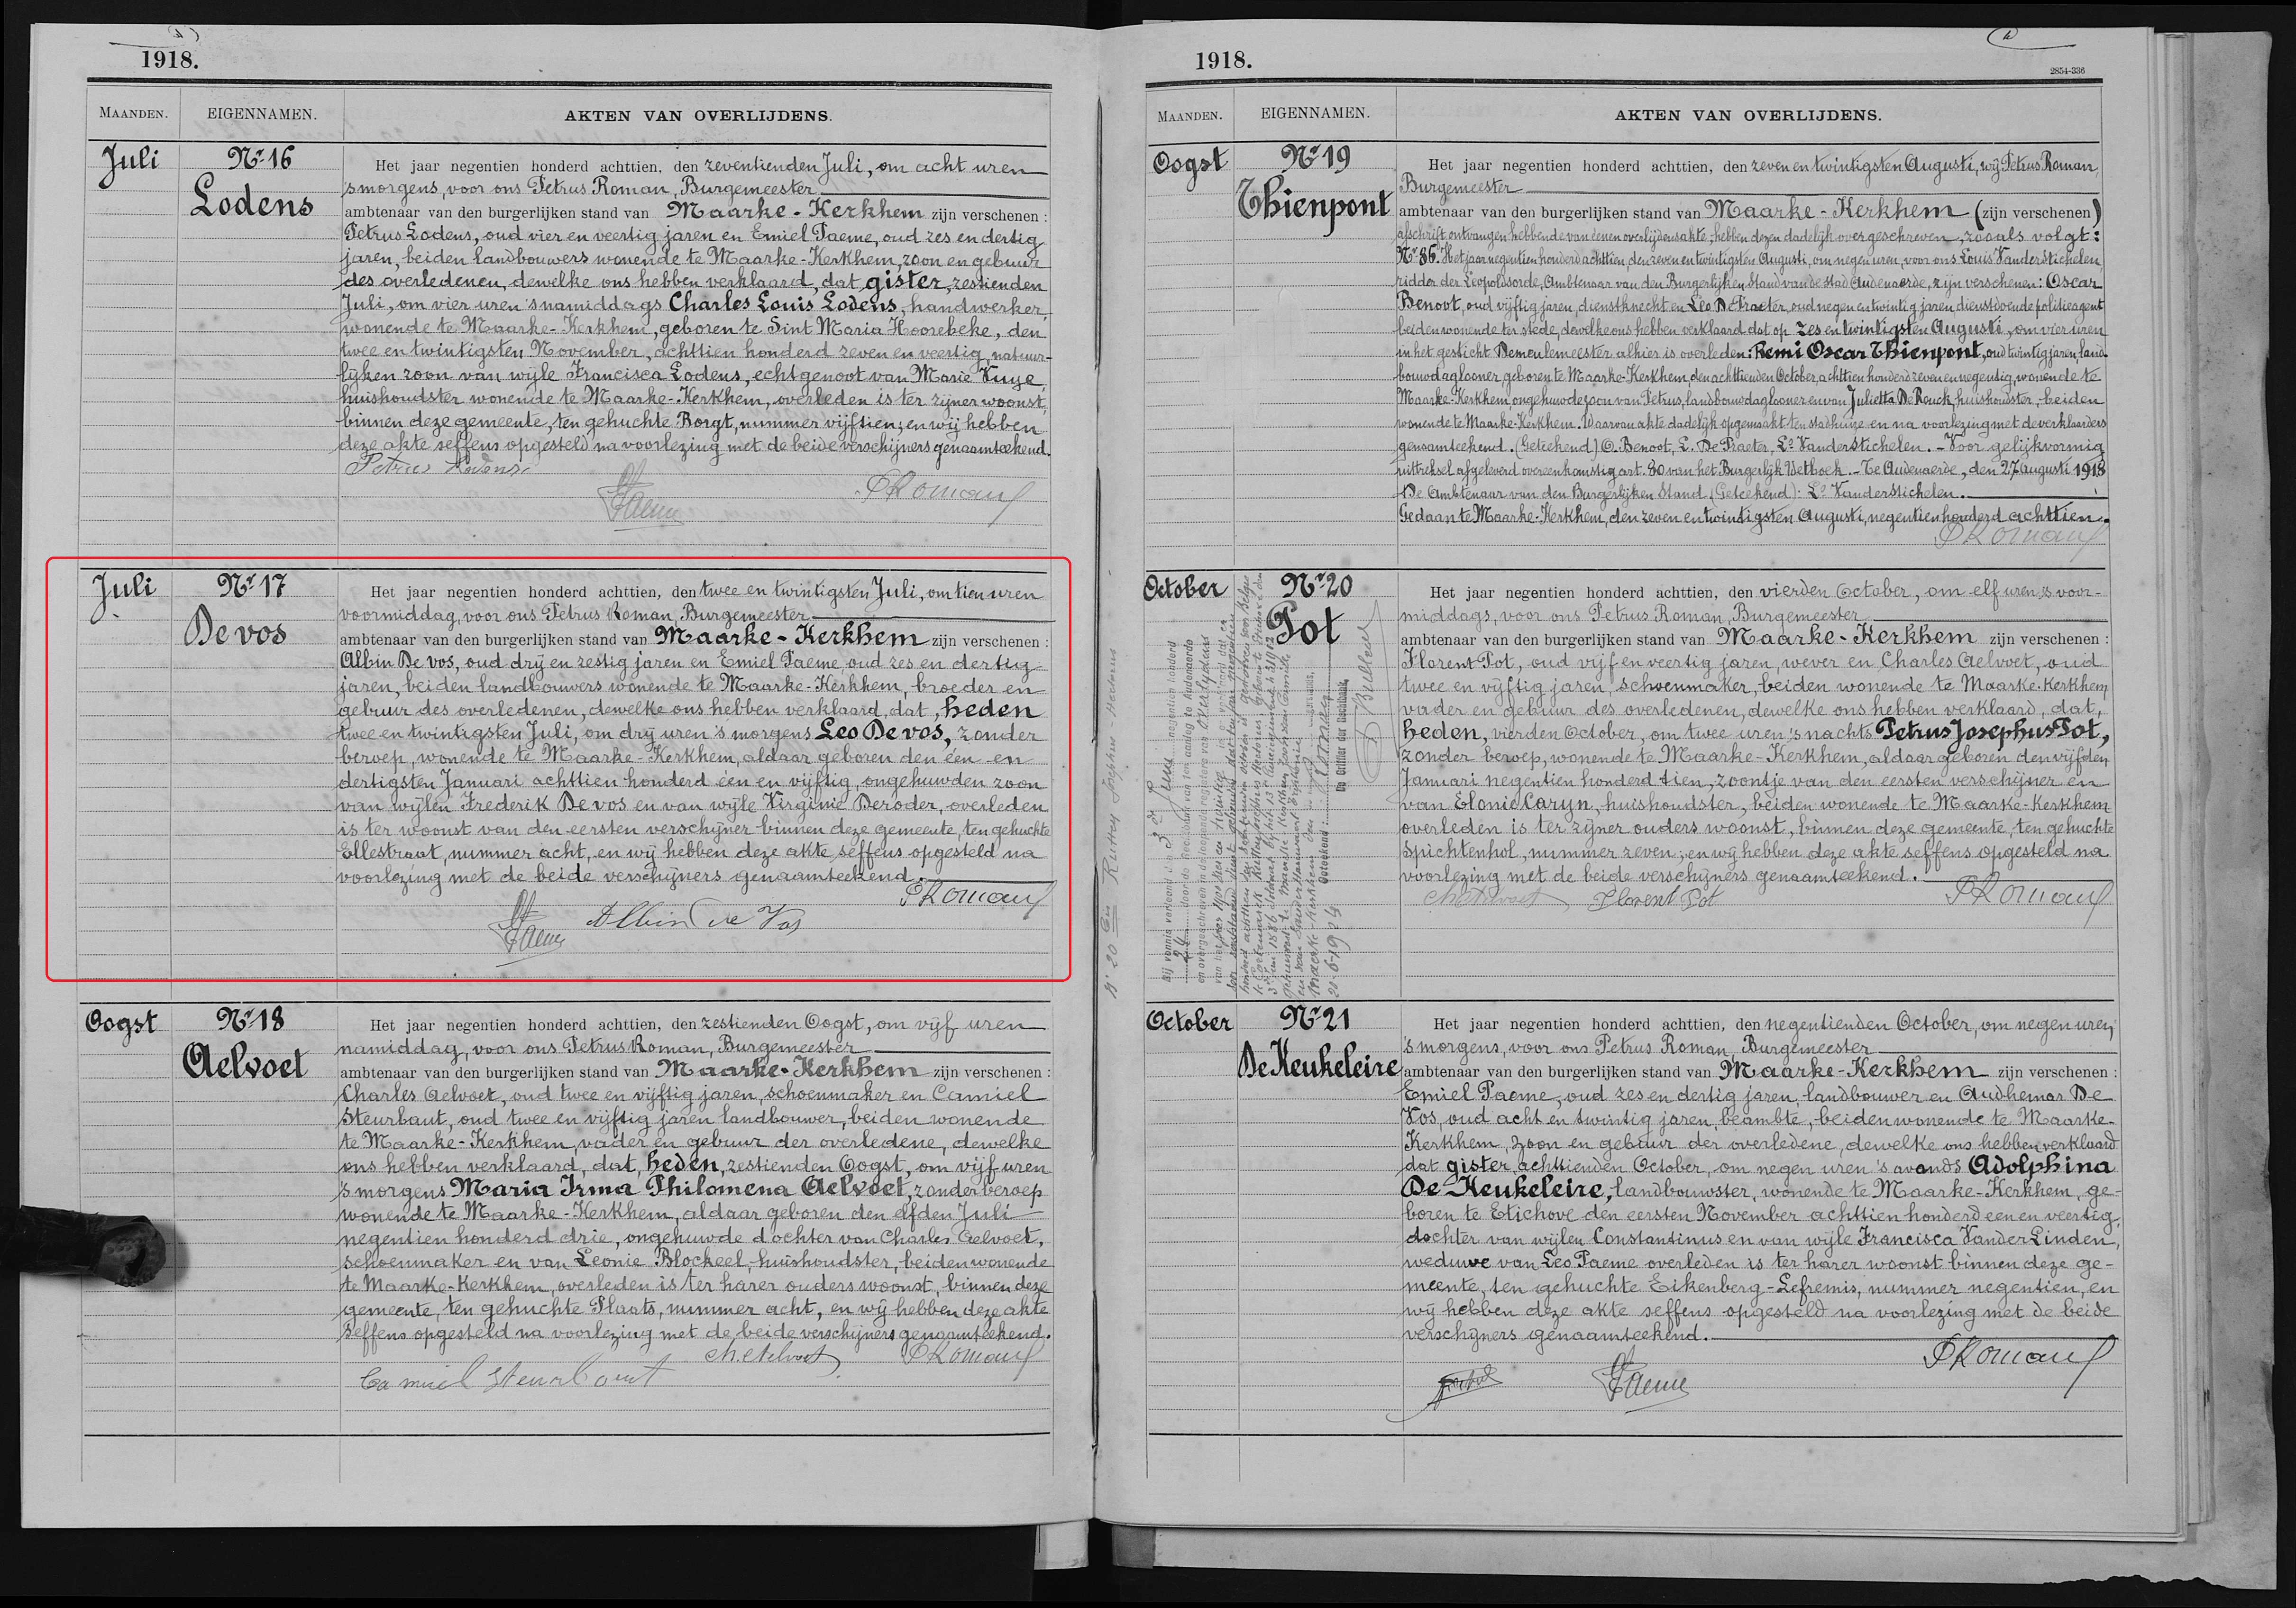 1918.
MAANDEN. EIGENNAMEN. AKTEN VAN OVERLIJDENS.
Juli
Nr 16
Lodens
Het jaar negentien honderd achttien, den zeventienden Juli, om acht uren
'smorgens, voor ons Petrus Roman, Burgemeester
ambtenaar van den burgerlijken stand van Maarke-Kerkhem zijn verschenen :
Petrus Lodens, oud vier en veertig jaren en Emiel Paeme, oud zes en dertig
jaren, beiden landbouwers wonende te Maarke-Kerkhem, zoon en gebuur
des overledenen, dewelke ons hebben verklaard, dat, gister, zestienden
Juli, om vier uren 'snamiddags Charles Louis Lodens, handwerker,
wonende te Maarke-Kerkhem, geboren te Sint Maria Hoorebeke, den
twee en twintigsten November, achttien honderd zeven en veertig, natuur-
lijken zoon van wijle Francisca Lodens, echtgenoot van Marie Vuye,
huishoudster wonende te Maarke-Kerkhem, overleden is ter zijner woonst,
binnen deze gemeente, ten gehuchte Borgt, nummer vijftien; en wij hebben
deze akte seffens opgesteld na voorlezing met de beide verschijners genaamteekend.
Petrus Lodens
EPaeme
PRoman
Juli
Nr 17
De vos
Het jaar negentien honderd achttien, den twee en twintigsten Juli, om tien uren
voormiddag, voor ons Petrus Roman, Burgemeester
ambtenaar van den burgerlijken stand van Maarke-Kerkhem zijn verschenen :
Albin De vos, oud drij en zestig jaren en Emiel Paeme, oud zes en dertig
jaren, beiden landbouwers wonende te Maarke-Kerkhem, broeder en
gebuur des overledenen, dewelke ons hebben verklaard, dat, heden
twee en twintigsten Juli, om drij uren 's morgens Leo De vos, zonder
beroep, wonende te Maarke-Kerkhem, aldaar geboren den één en
dertigsten Januari achttien honderd één en vijftig, ongehuwden zoon
van wijlen Frederik De vos en van wijle Virginie Deroder, overleden
is ter woonst van den eersten verschijner binnen deze gemeente, ten gehuchte
Ellestraat, nummer acht, en wij hebben deze akte seffens opgesteld na
voorlezing met de beide verschijners genaamteekend.
PRoman
EPaeme Albin De Vos
Oogst
Nr 18
Aelvoet
Het jaar negentien honderd achttien, den zestienden Oogst, om vijf uren
namiddag, voor ons Petrus Roman, Burgemeester
ambtenaar van den burgerlijken stand van Maarke-Kerkhem zijn verschenen :
Charles Aelvoet, oud twee en vijftig jaren, schoenmaker en Camiel
Steurbaut, oud twee en vijftig jaren landbouwer, beiden wonende
te Maarke-Kerkhem, vader en gebuur der overledene, dewelke
ons hebben verklaard, dat, heden, zestienden Oogst, om vijf uren
'smorgens Maria Irma Philomena Aelvoet, zonder beroep
wonende te Maarke-Kerkhem, aldaar geboren den elfden Juli
negentien honderd drie, ongehuwde dochter van Charles Aelvoet,
schoenmaker en van Leonie Blockeel, huishoudster, beiden wonende
te Maarke-Kerkhem, overleden is ter harer ouders woonst, binnen deze
gemeente, ten gehuchte Plaats, nummer acht, en wij hebben deze akte
seffens opgesteld na voorlezing met de beide verschijners genaamteekend.
Ch. Aelvoet PRoman
Camiel Steurbaut
1918.
2854-336
MAANDEN. EIGENNAMEN. AKTEN VAN OVERLIJDENS.
Oogst
Nr 19
Thienpont
Het jaar negentien honderd achttien, den zeven en twintigsten Augusti, wij Petrus Roman,
Burgemeester
ambtenaar van den burgerlijken stand van Maarke-Kerkhem (zijn verschenen)
afschrift ontvangen hebbende van eenen overlijdensakte, hebben dezen dadelijk overgeschreven, zooals volgt:
Nr 86. Het jaar negentien honderd achttien, den zeven en twintigsten Augusti, om negen uren, voor ons Louis Vanderstichelen,
ridder der Leopoldsorde, Ambtenaar van den Burgerlijken Stand van de Stad Audenaerde, zijn verschenen: Oscar
Benoot, oud vijftig jaren, dienstknecht en Leo De Praeter, oud negen en twintig jaren, dienstdoende politieagent
beiden wonende ter stede, dewelke ons hebben verklaard dat op zes en twintigsten Augusti, om vier uren
in het gesticht Demeulemeester alhier is overleden: Remi Oscar Thienpont, oud twintig jaren, land-
bouwdaglooner, geboren te Maarke-Kerkhem, den achttienden October, achttien honderd zeven en negentig, wonende te
Maarke-Kerkhem, ongehuwde zoon van Petrus, landbouwdaglooner en van Julietta De Rouck, huishoudster, beiden
wonende te Maarke-Kerkhem. Waarvan akte dadelijk opgemaakt ten stadhuize en na voorlezing met de verklaarders
genaamteekend. (Geteekend) O. Benoot, L. De Praeter, Ls Vanderstichelen. - Voor gelijkvormig
uittreksel afgeleverd overeenkomstig art. 80 van het Burgerlijk Wetboek. - Te Audenaerde, den 27 augusti 1918
De Ambtenaar van den Burgerlijken Stand (Geteekend): Ls Vanderstichelen.
Gedaan te Maarke-Kerkhem, den zeven en twintigsten Augusti, negentien honderd achttien.
PRoman
October
Nr 20
Pot
Het jaar negentien honderd achttien, den vierden October, om elf uren 's voor-
middags, voor ons Petrus Roman, Burgemeester
ambtenaar van den burgerlijken stand van Maarke-Kerkhem zijn verschenen :
Florent Pot, oud vijf en veertig jaren, wever en Charles Aelvoet, oud
twee en vijftig jaren, schoenmaker, beiden wonende te Maarke-Kerkhem
vader en gebuur des overledenen, dewelke ons hebben verklaard, dat,
heden, vierden October, om twee uren 's nachts Petrus Josephus Pot,
zonder beroep, wonende te Maarke-Kerkhem, aldaar geboren den vijfden
Januari negentien honderd tien, zoontje van den eersten verschijner en
van Elonie Caryn, huishoudster, beiden wonende te Maarke-Kerkhem
overleden is ter zijner ouders woonst, binnen deze gemeente, ten gehuchte
Spichtenhol, nummer zeven; en wij hebben deze akte seffens opgesteld na
voorlezing met de beide verschijners genaamteekend.
Ch Aelvoet Florent Pot PRoman
October
Nr 21
De Keukeleire
Het jaar negentien honderd achttien, den negentienden October, om negen uren,
's morgens, voor ons Petrus Roman, Burgemeester
ambtenaar van den burgerlijken stand van Maarke-Kerkhem zijn verschenen :
Emiel Paeme, oud zes en dertig jaren, landbouwer en Audhemar De
Vos, oud acht en twintig jaren, beambte, beiden wonende te Maarke-
Kerkhem, zoon en gebuur der overledene, dewelke ons hebben verklaard
dat gister, achttienden October, om negen uren 's avonds Adolphina
De Keukeleire, landbouwster, wonende te Maarke-Kerkhem, ge-
boren te Etichove den eersten November achttien honderd een en veertig,
dochter van wijlen Constantinus en van wijle Francisca Vander Linden,
weduwe van Leo Paeme overleden is ter harer woonst binnen deze ge-
meente, ten gehuchte Eikenberg-Lefremis, nummer negentien, en
wij hebben deze akte seffens opgesteld na voorlezing met de beide
verschijners genaamteekend.
PRoman
EPaeme